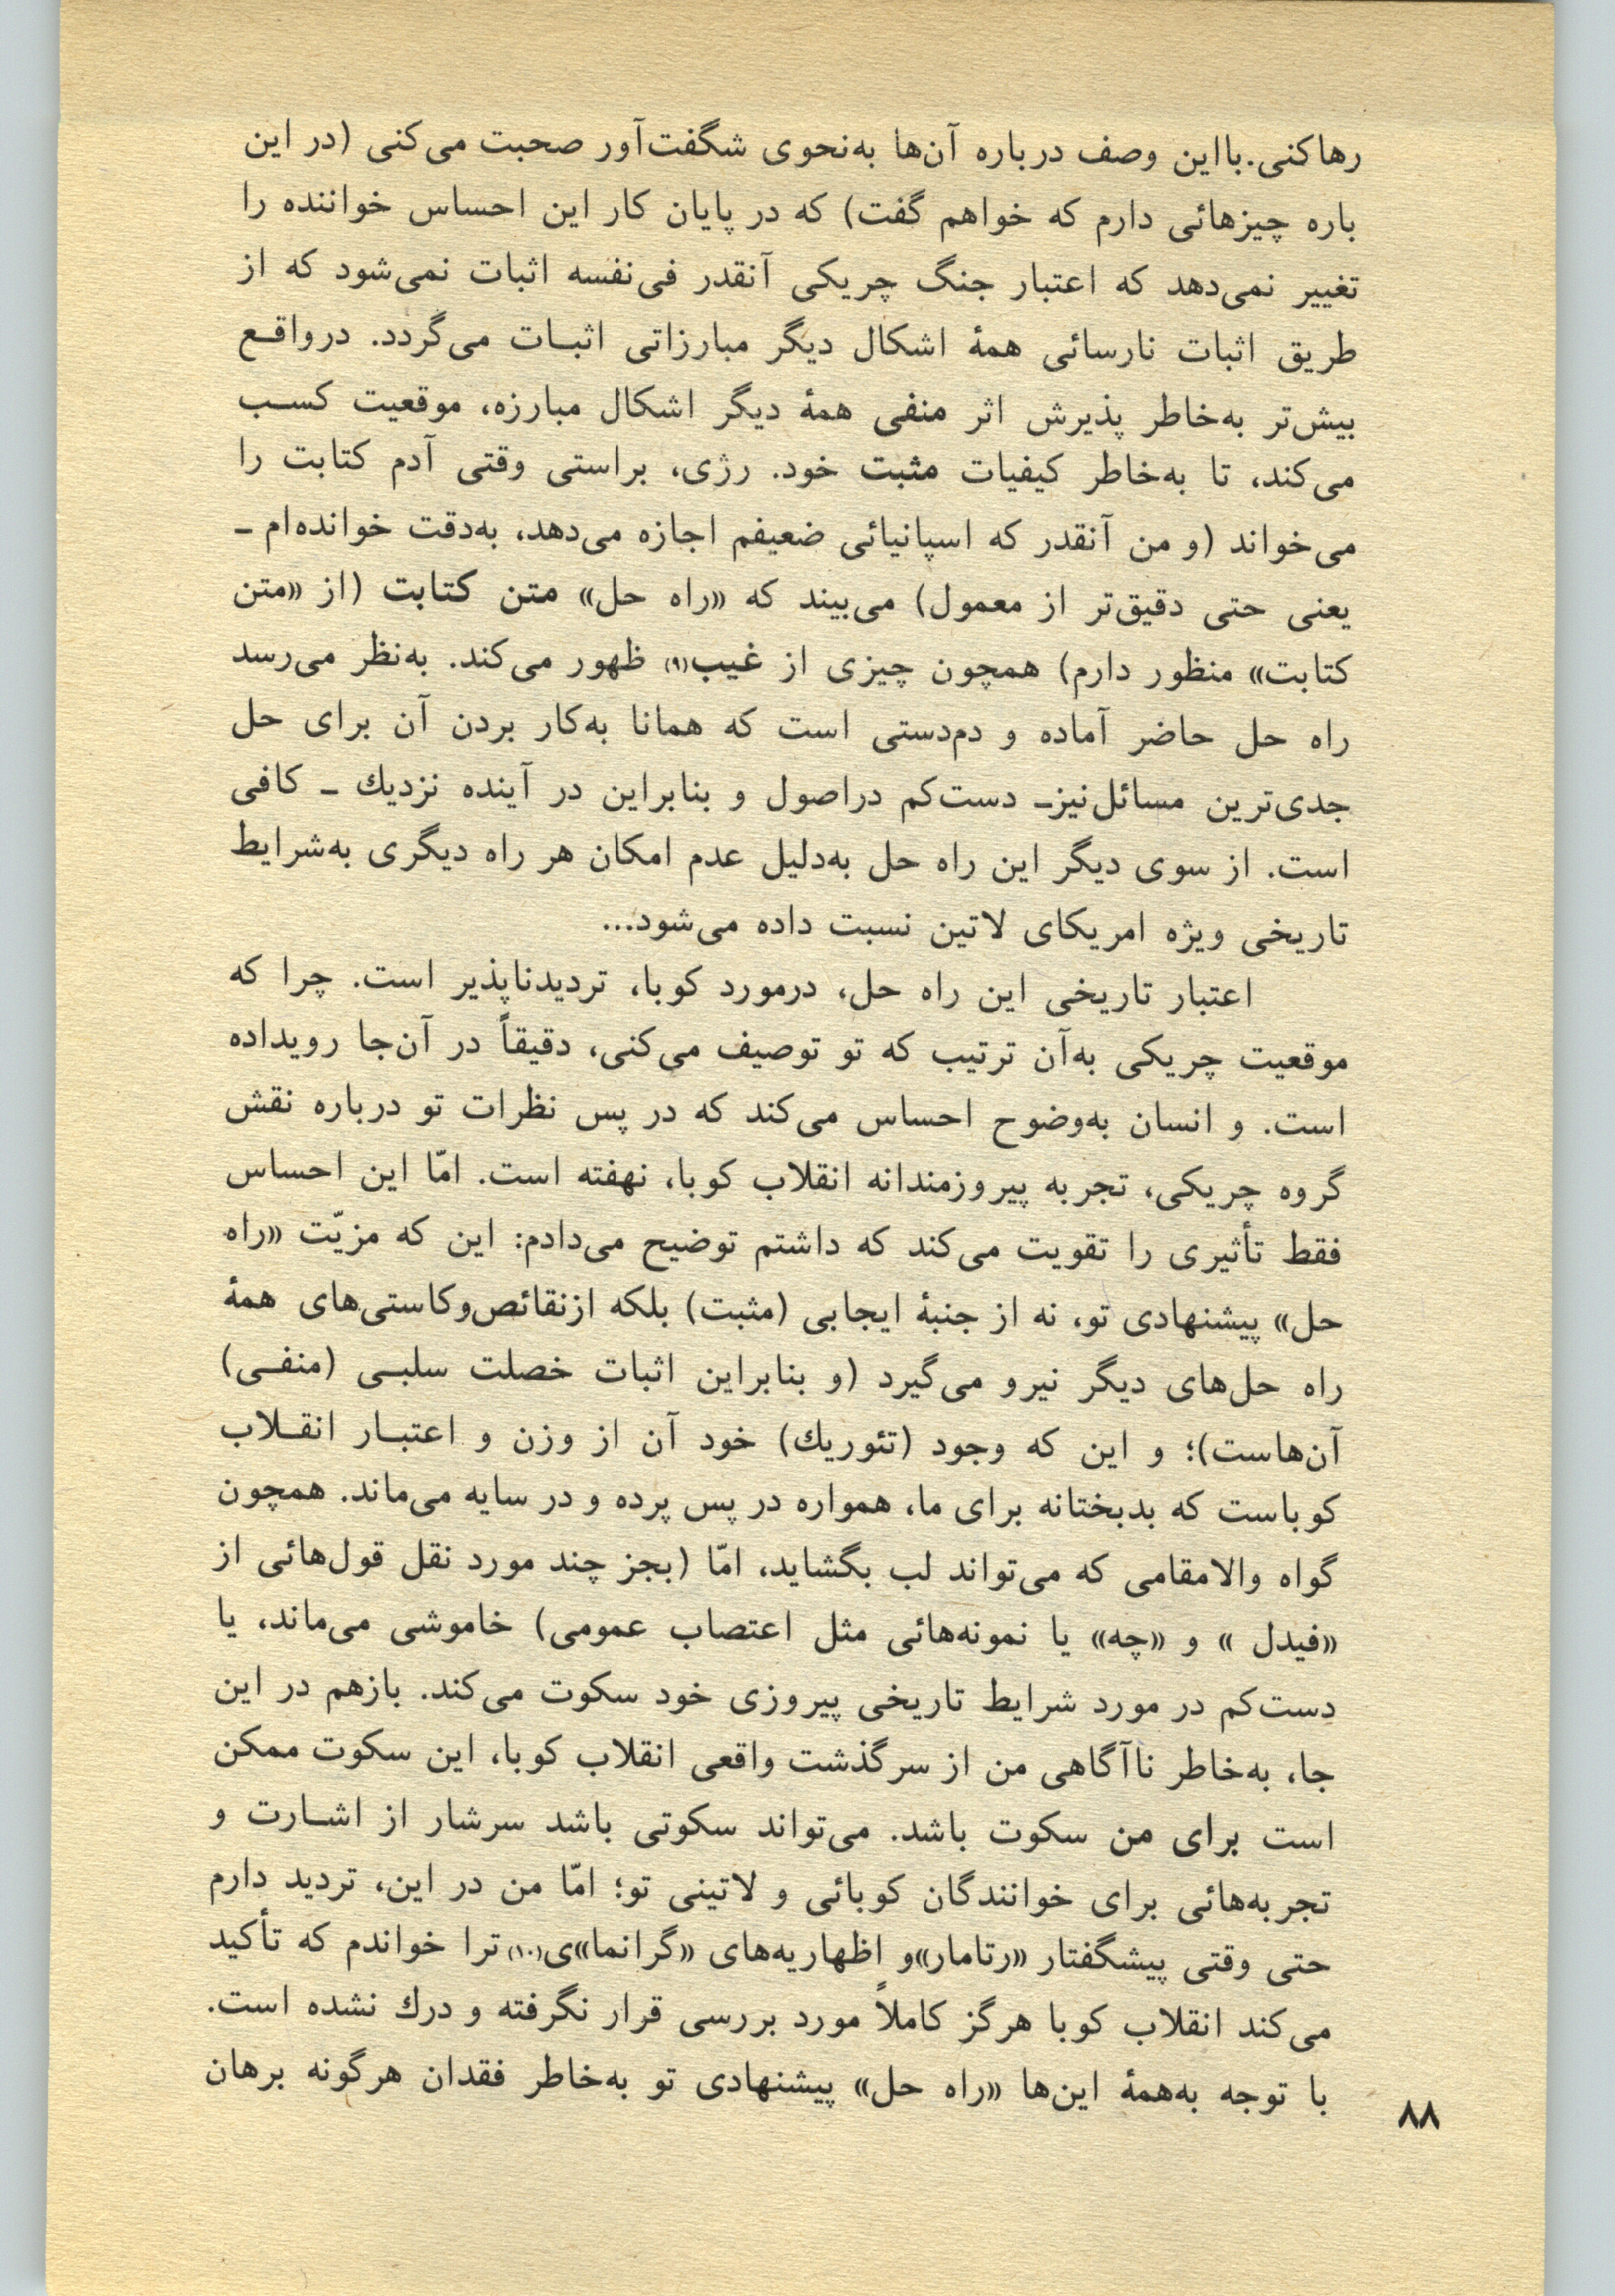 رهاکنی. بااین وصف درباره آن‌ها به‌نحوی شگفت‌آور صحبت می‌کنی (در این
باره چیزهائی دارم که خواهم گفت) که در پایان کار این احساس خواننده را
تغییر نمی‌دهد که اعتبار جنگ چریکی آنقدر فی‌نفسه اثبات نمی‌شود که از
طریق اثبات نارسائی همهٔ اشکال دیگر مبارزاتی اثبـات می‌گردد. درواقـع
بیش‌تر به‌خاطر پذیرش اثر منفی همهٔ دیگر اشکال مبارزه، موقعیت کسـب
می‌کند، تا به‌خاطر کیفیات مثبت خود. رژی، براستی وقتی آدم کتابت را
می‌خواند (و من آنقدر که اسپانیائی ضعیفم اجازه می‌دهد، به‌دقت خوانده‌ام ـ
یعنی حتی دقیق‌تر از معمول) می‌بیند که «راه حل» متن کتابت (از «متن
کتابت» منظور دارم) همچون چیزی از غیب(۹) ظهور می‌کند. به‌نظر می‌رسد
راه حل حاضر آماده و دم‌دستی است که همانا به‌کار بردن آن برای حل
جدی‌ترین مسائل‌نیزـ دست‌کم دراصول و بنابراین در آینده نزدیك ـ کافی
است. از سوی دیگر این راه حل به‌دلیل عدم امکان هر راه دیگری به‌شرایط
تاریخی ویژه امریکای لاتین نسبت داده می‌شود...
اعتبار تاریخی این راه حل، درمورد کوبا، تردیدناپذیر است. چرا که
موقعیت چریکی به‌آن ترتیب که تو توصیف می‌کنی، دقیقاً در آن‌جا رویداده
است. و انسان به‌وضوح احساس می‌کند که در پس نظرات تو درباره نقش
گروه چریکی، تجربه پیروزمندانه انقلاب کوبا، نهفته است. امّا این احساس
فقط تأثیری را تقویت می‌کند که داشتم توضیح می‌دادم: این که مزیّت «راه
حل» پیشنهادی تو، نه از جنبهٔ ایجابی (مثبت) بلکه ازنقائص‌وکاستی‌های همهٔ
راه حل‌های دیگر نیرو می‌گیرد (و بنابراین اثبات خصلت سلبـی (منفـی)
آن‌هاست)؛ و این که وجود (تئوریك) خود آن از وزن و اعتبـار انقـلاب
کوباست که بدبختانه برای ما، همواره در پس پرده و در سایه می‌ماند. همچون
گواه والامقامی که می‌تواند لب بگشاید، امّا (بجز چند مورد نقل قول‌هائی از
«فیدل » و «چه» یا نمونه‌هائی مثل اعتصاب عمومی) خاموشی می‌ماند، یا
دست‌کم در مورد شرایط تاریخی پیروزی خود سکوت می‌کند. بازهم در این
جا، به‌خاطر ناآگاهی من از سرگذشت واقعی انقلاب کوبا، این سکوت ممکن
است برای من سکوت باشد. می‌تواند سکوتی باشد سرشار از اشـارت و
تجربه‌هائی برای خوانندگان کوبائی و لاتینی تو؛ امّا من در این، تردید دارم
حتی وقتی پیشگفتار «رتامار»و اظهاریه‌های «گرانما»ی(۱۰) ترا خواندم که تأکید
می‌کند انقلاب کوبا هرگز کاملاً مورد بررسی قرار نگرفته و درك نشده است.
با توجه به‌همهٔ این‌ها «راه حل» پیشنهادی تو به‌خاطر فقدان هرگونه برهان
۸۸